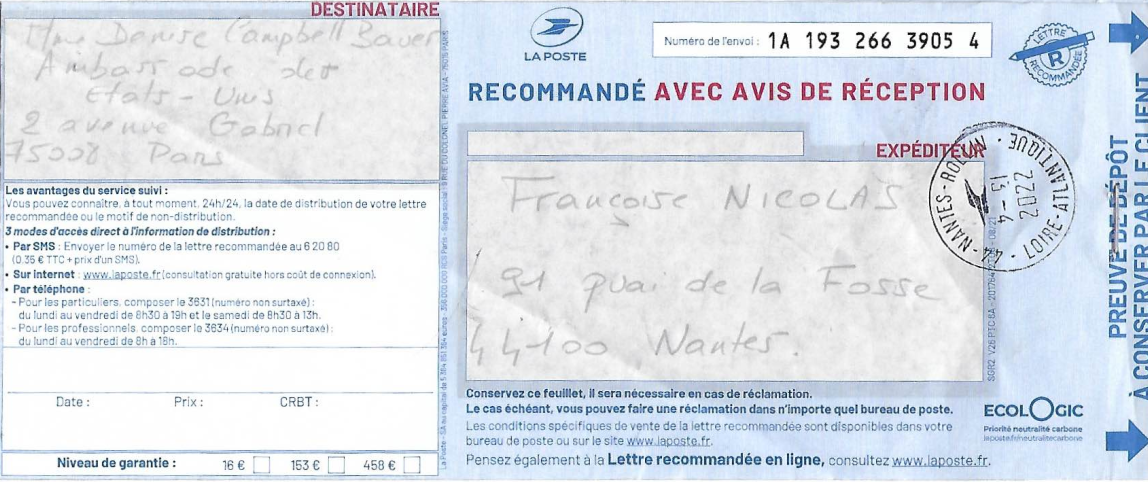 DESTINATAIRE
Mme Denise Campbell Bauer
Ambassade des
Etats-Unis
2 avenue Gabriel
75008 Paris
Les avantages du service suivi :
Vous pouvez connaître, à tout moment, 24h/24, la date de distribution de votre lettre
recommandée ou le motif de non-distribution.
3 modes d'accès direct à l'information de distribution :
• Par SMS : Envoyer le numéro de la lettre recommandée au 6 20 80
(0.35 € TTC + prix d'un SMS).
• Sur internet : www.laposte.fr (consultation gratuite hors coût de connexion).
• Par téléphone :
- Pour les particuliers, composer le 3631 (numéro non surtaxé) :
du lundi au vendredi de 8h30 à 19h et le samedi de 8h30 à 13h.
- Pour les professionnels, composer le 3634 (numéro non surtaxé) :
du lundi au vendredi de 8h à 18h.
Date : Prix : CRBT :
Niveau de garantie : 16 € 153 € 458 €
LA POSTE
Numéro de l'envoi : 1A 193 266 3905 4
LETTRE
R
RECOMMANDÉE
RECOMMANDÉ AVEC AVIS DE RÉCEPTION
EXPÉDITEUR
Françoise NICOLAS
91 quai de la Fosse
44100 Nantes.
44-NANTES-ROLLIN
13-4
2022
LOIRE-ATLANTIQUE
Conservez ce feuillet, il sera nécessaire en cas de réclamation.
Le cas échéant, vous pouvez faire une réclamation dans n'importe quel bureau de poste.
Les conditions spécifiques de vente de la lettre recommandée sont disponibles dans votre
bureau de poste ou sur le site www.laposte.fr.
Pensez également à la Lettre recommandée en ligne, consultez www.laposte.fr.
ECOLOGIC
Priorité neutralité carbone
laposte.fr/neutralitecarbone
PREUVE DE DÉPÔT
À CONSERVER PAR LE CLIENT